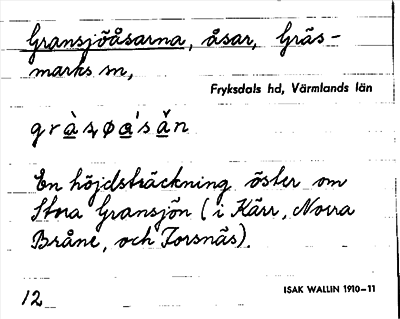 Gransjöåsarna, åsar, Gräs-
marks sn,
Fryksdals hd, Värmlands län
En höjdsträckning öster om
Stora Gransjön (i Kärr, Norra
Bråne, och Torsnäs).
12
ISAK WALLIN 1910-11